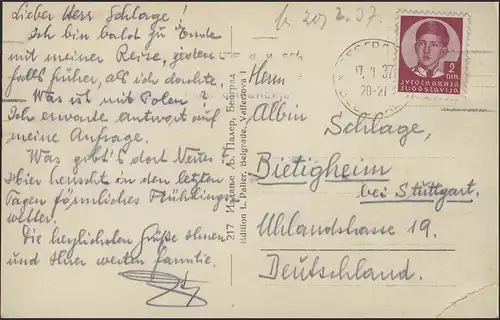 Lieber Herr Schlage!
Ich bin bald zu Ende
mit meiner Reise, jeden-
falls früher, als ich dachte.
Was ist mit Polen?
Ich erwarte Antwort auf
meine Anfrage.
Was gibt's dort Neues?
Hier herrscht in den letzten
Tagen förmliches Frühlings-
wetter.
Die herzlichsten Grüße Ihnen
und Ihrer werten Familie.
217 Издање Љ. Палер, Београд
Edition L. Palier, Belgrade, Vaïferova 1
2.37.
37
20-21
2
DIN.
ЈУГОСЛАВИЈА
JUGOSLAVIJA
Herrn
Albin
Schlage,
Bietigheim
bei Stuttgart.
Uhlandstrasse 19.
Deutschland.